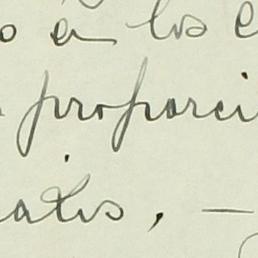 o a los e
proporci
atis. —